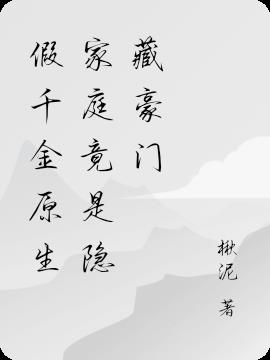 假千金原生
家庭竟是隐
藏豪门
揪泥 著